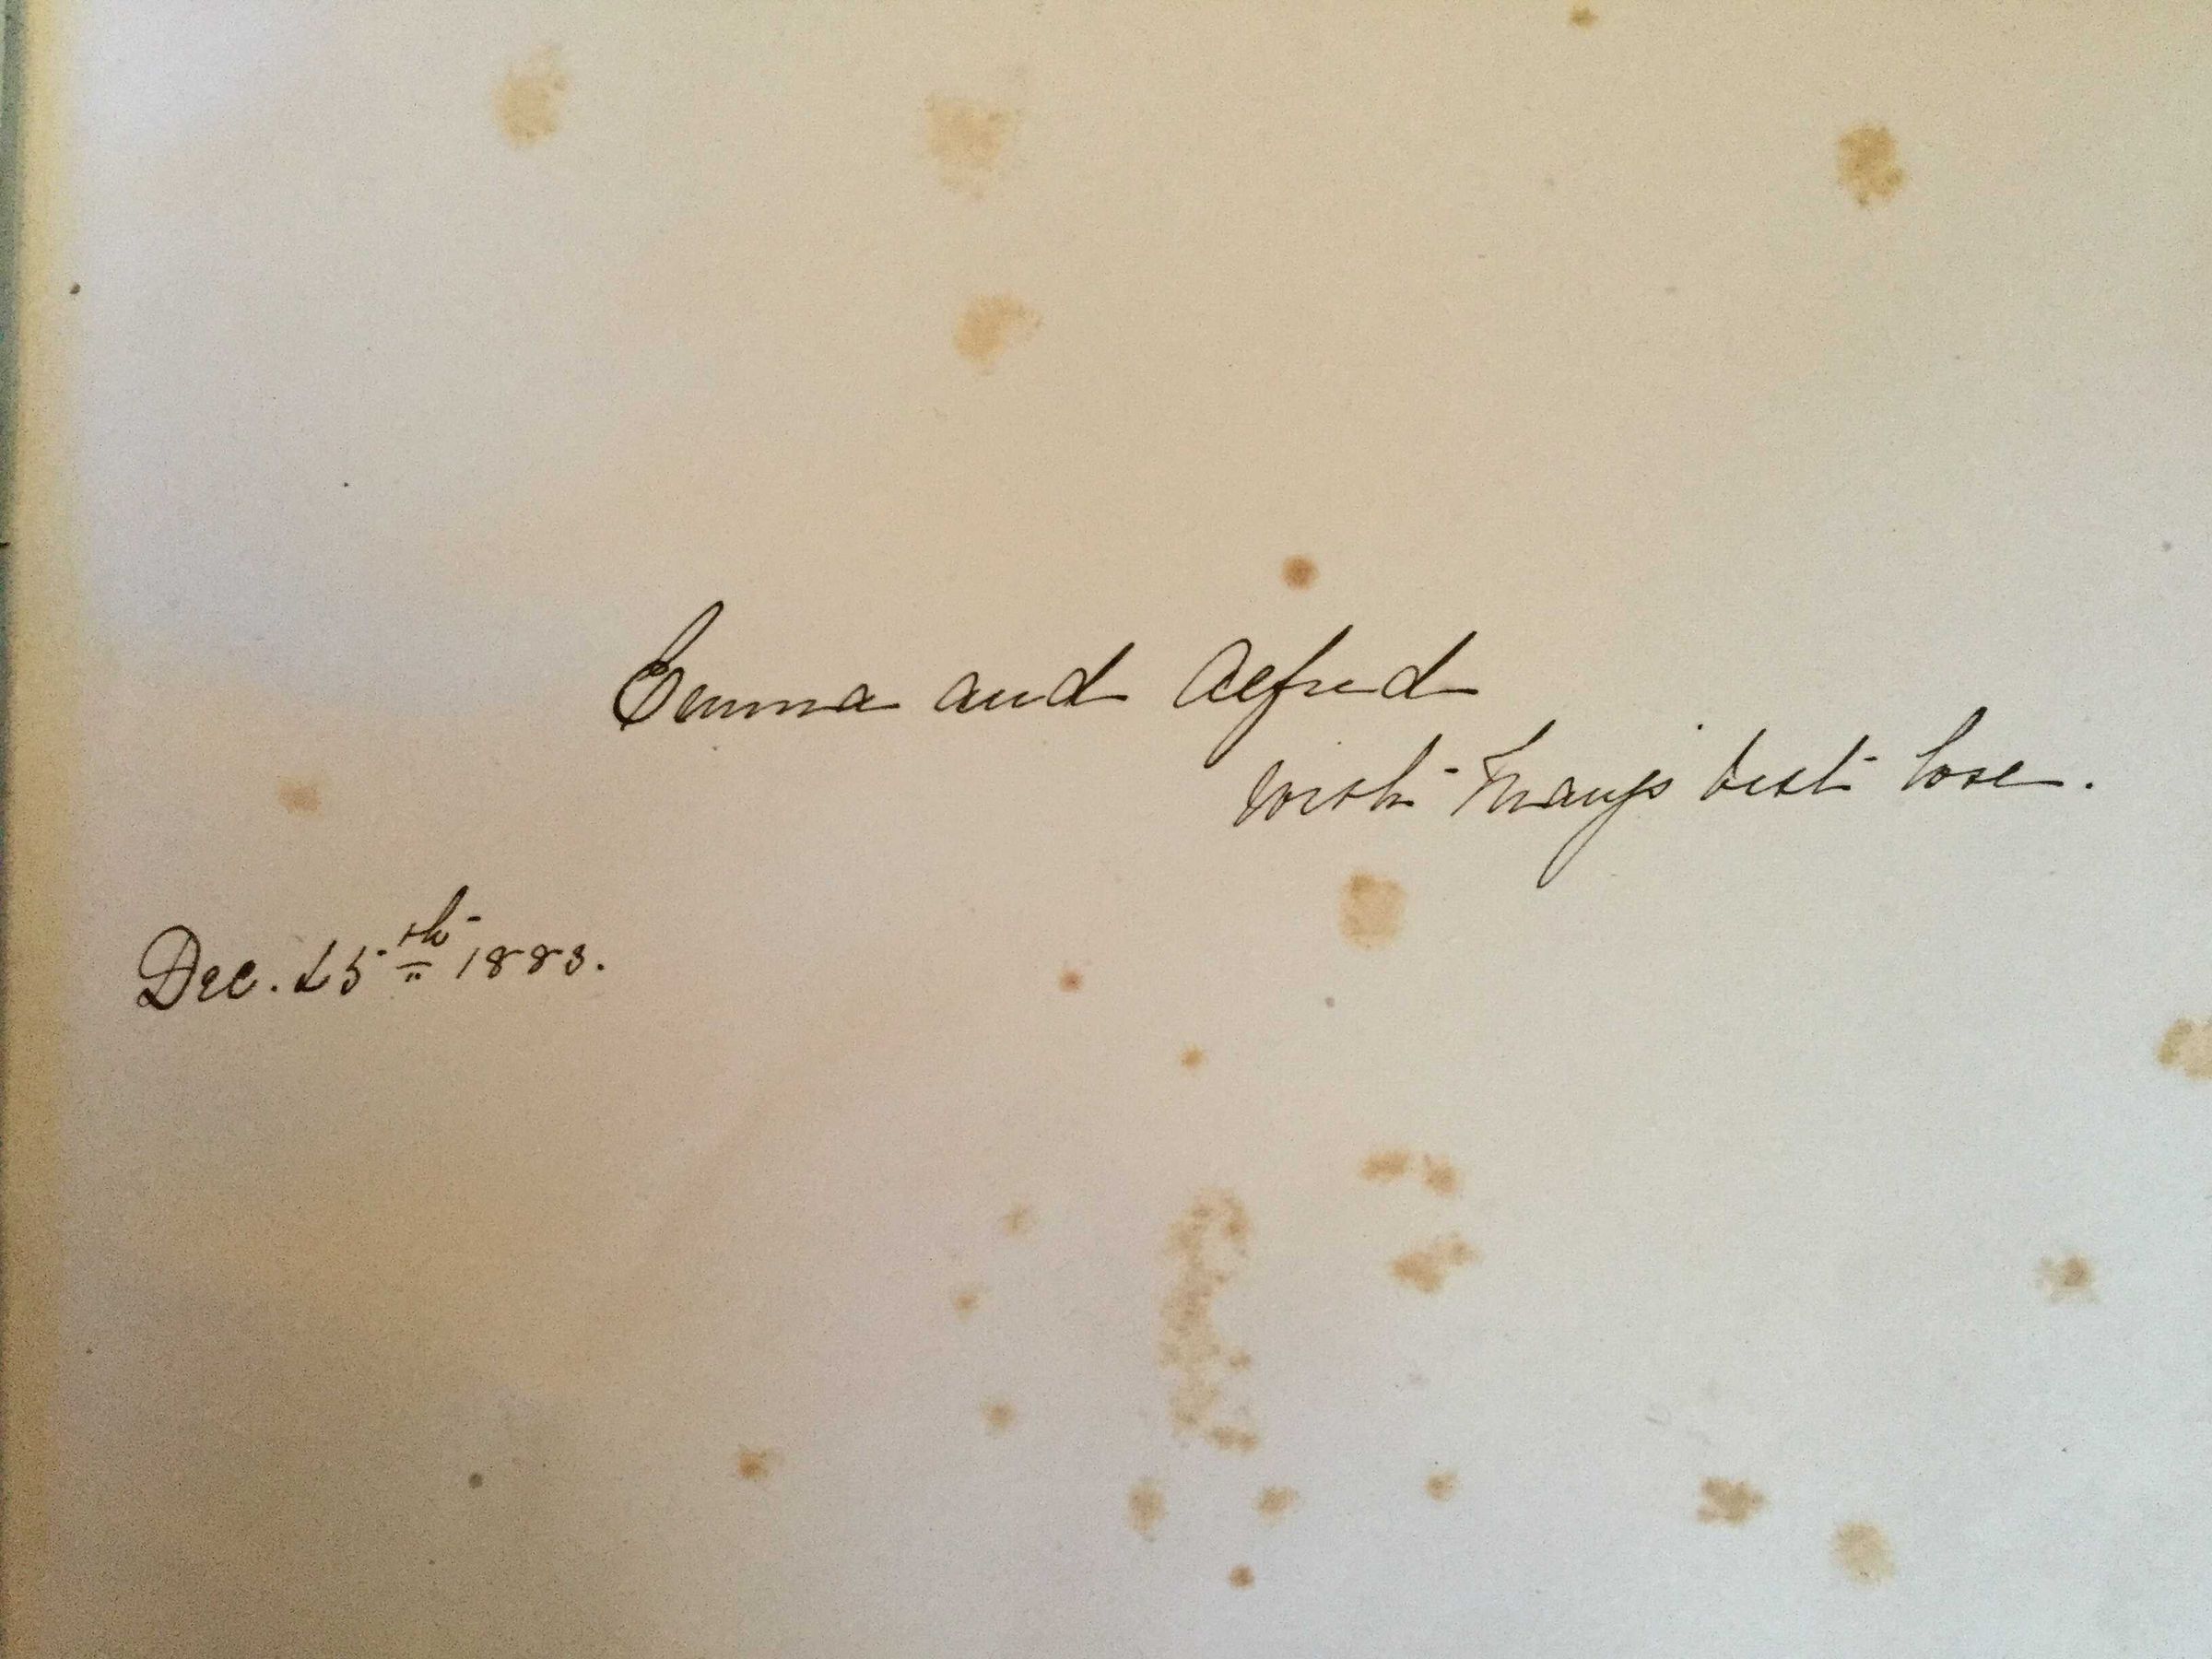 Emma and Alfred
with Mary's best love.
Dec. 25th 1883.